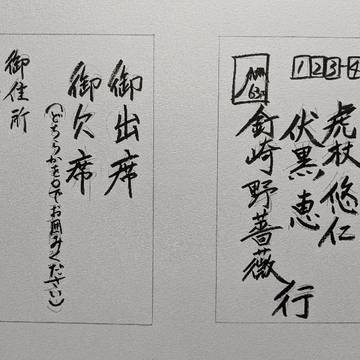 123-4
虎杖 悠仁
伏黒 恵
釘崎 野薔薇 行
63
御出席
御欠席
(どちらかを○でお囲みください)
御住所